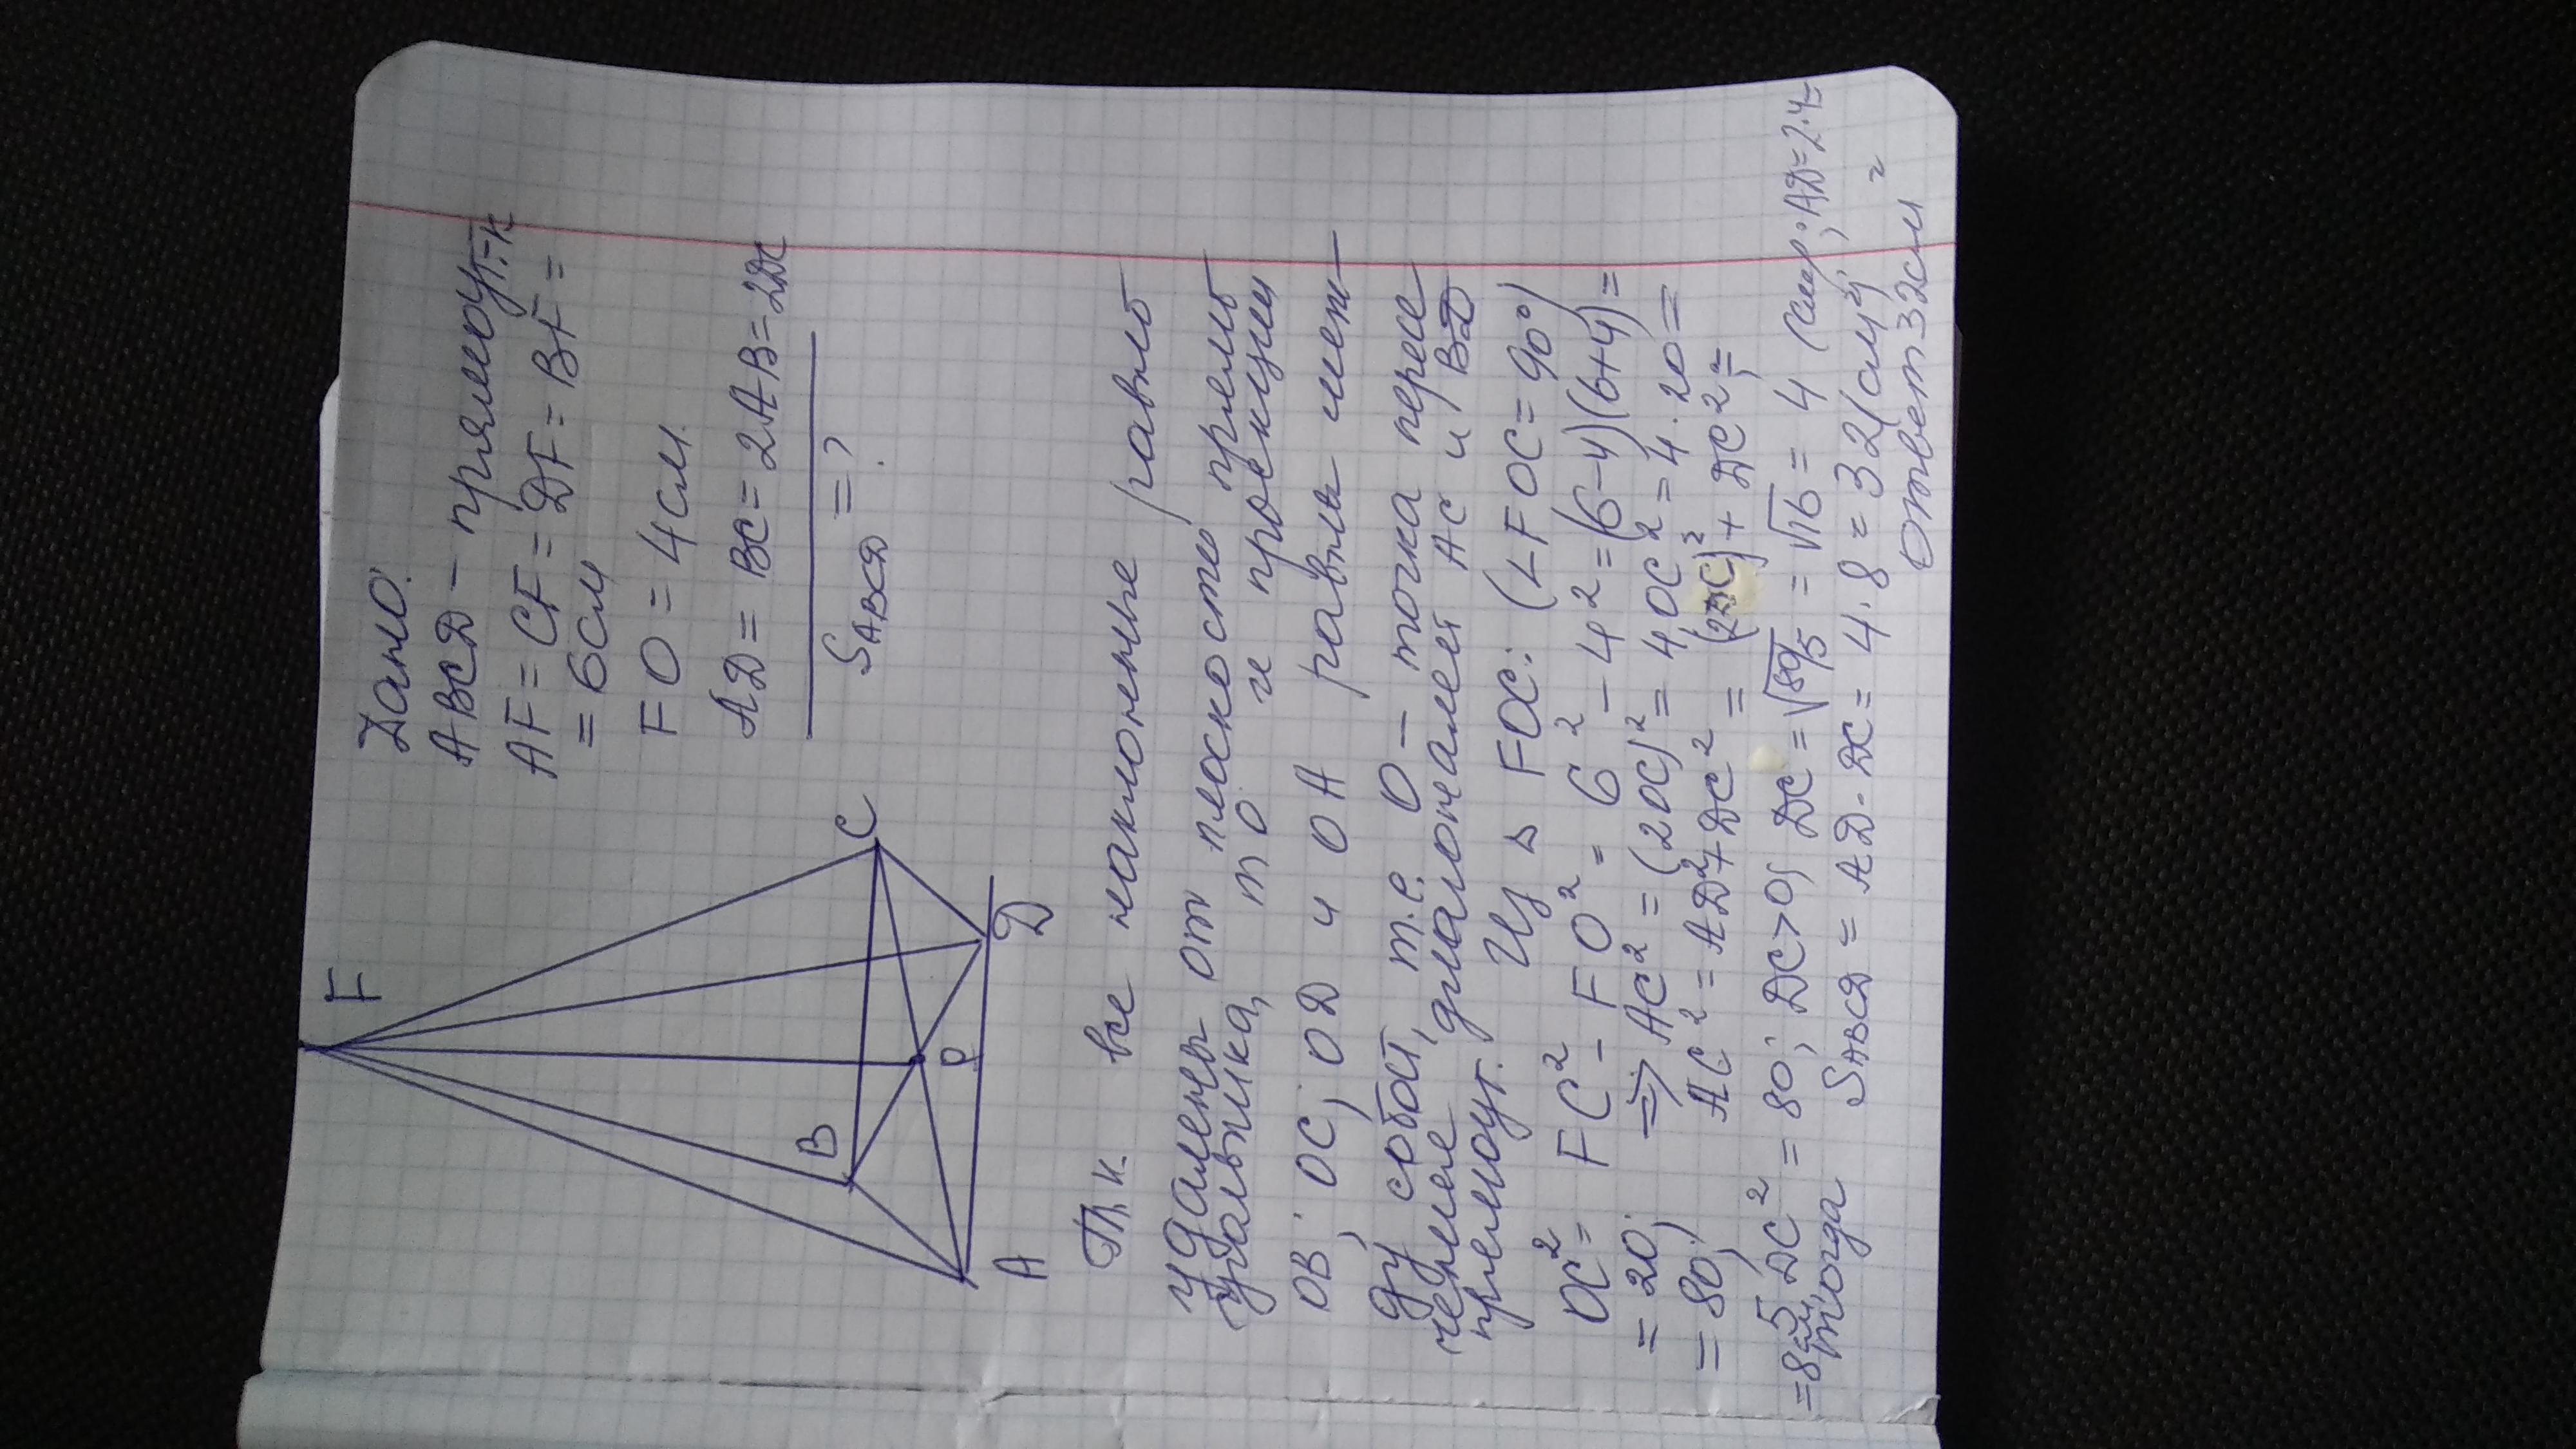 F
B
C
O
A
D
Дано:
ABCD - прямоуг-к
AF = CF = DF = BF =
= 6 см
FO = 4 см.
AD = BC = 2AB = 2DC
SABCD = ?
Т.к. все наклонные равно
удалены от плоскости прямо
угольника, то и проекции
OB; OC; OD и OA равны меж-
ду собой, т.е. O - точка пересе
чения диагоналей AC и BD
прямоуг. Из Δ FOC: (∠FOC = 90°)
OC² = FC² - FO² = 6² - 4² = (6-4)(6+4) =
= 20; => AC² = (2OC)² = 4OC² = 4·20 =
= 80; AC² = AD² + DC² = (2DC)² + DC² =
= 5DC² = 80; DC > 0; DC = √80/5 = √16 = 4 (см); AD = 2·4 =
= 8 см, тогда SABCD = AD·DC = 4·8 = 32 (см²)
Ответ 32 см²